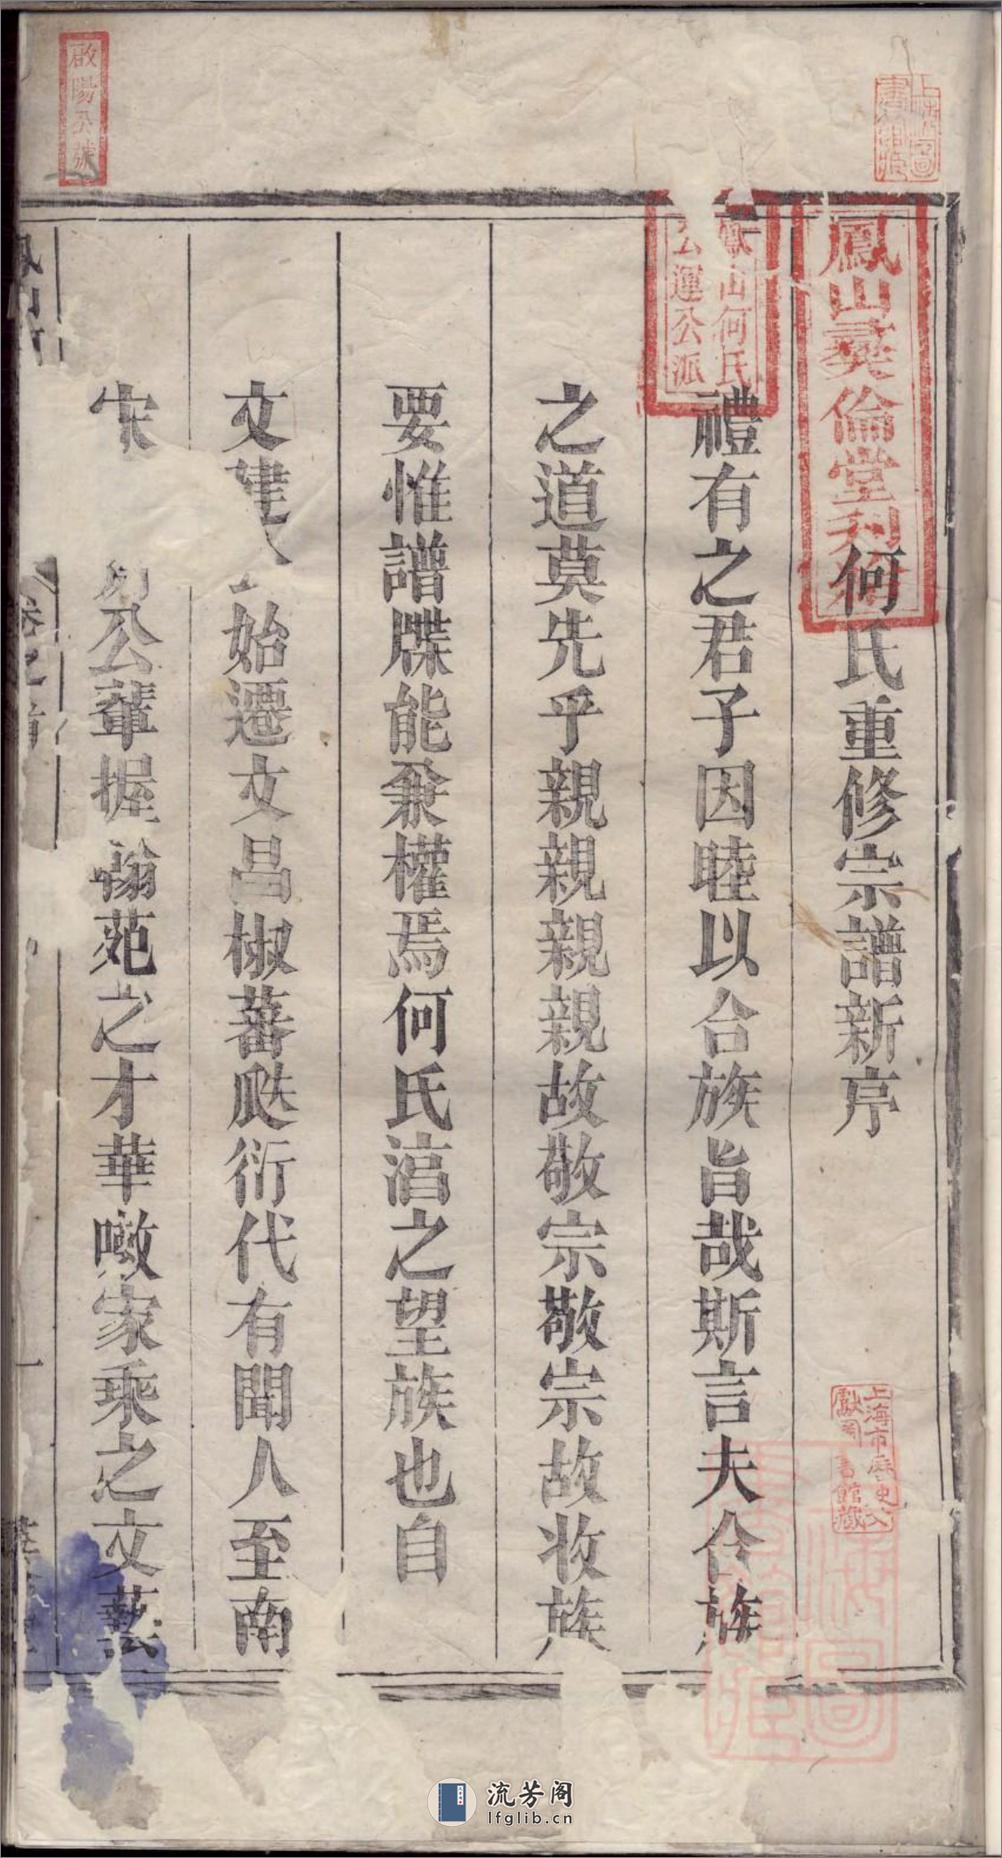 何氏重修宗譜新序
禮有之君子因睦以合族旨哉斯言夫合族
之道莫先乎親親親親故敬宗敬宗故收族
要惟譜牒能兼權焉何氏涫之望族也自
文建 始遷文昌椒蕃瓞衍代有聞人至南
宋 公輩握翰苑之才華噉家乘之文藝
鳳山彝倫堂
鳳山何氏
公運公派
啟陽公號
上海市歷史文
獻圖書館藏
卷之首
一
流芳阁
lfglib.cn